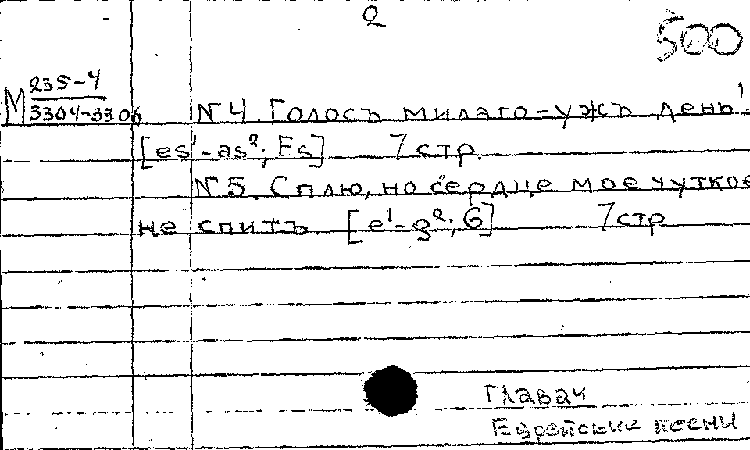 2
500
М 235-4
3304-3306
N 4 Голосъ милаго-ужъ день!
[es¹-as²; Fs] 7 стр.
N 5. Сплю, но сердце мое чуткое
не спитъ [e¹-g²; G] 7 стр
Главач
Еврейские песни